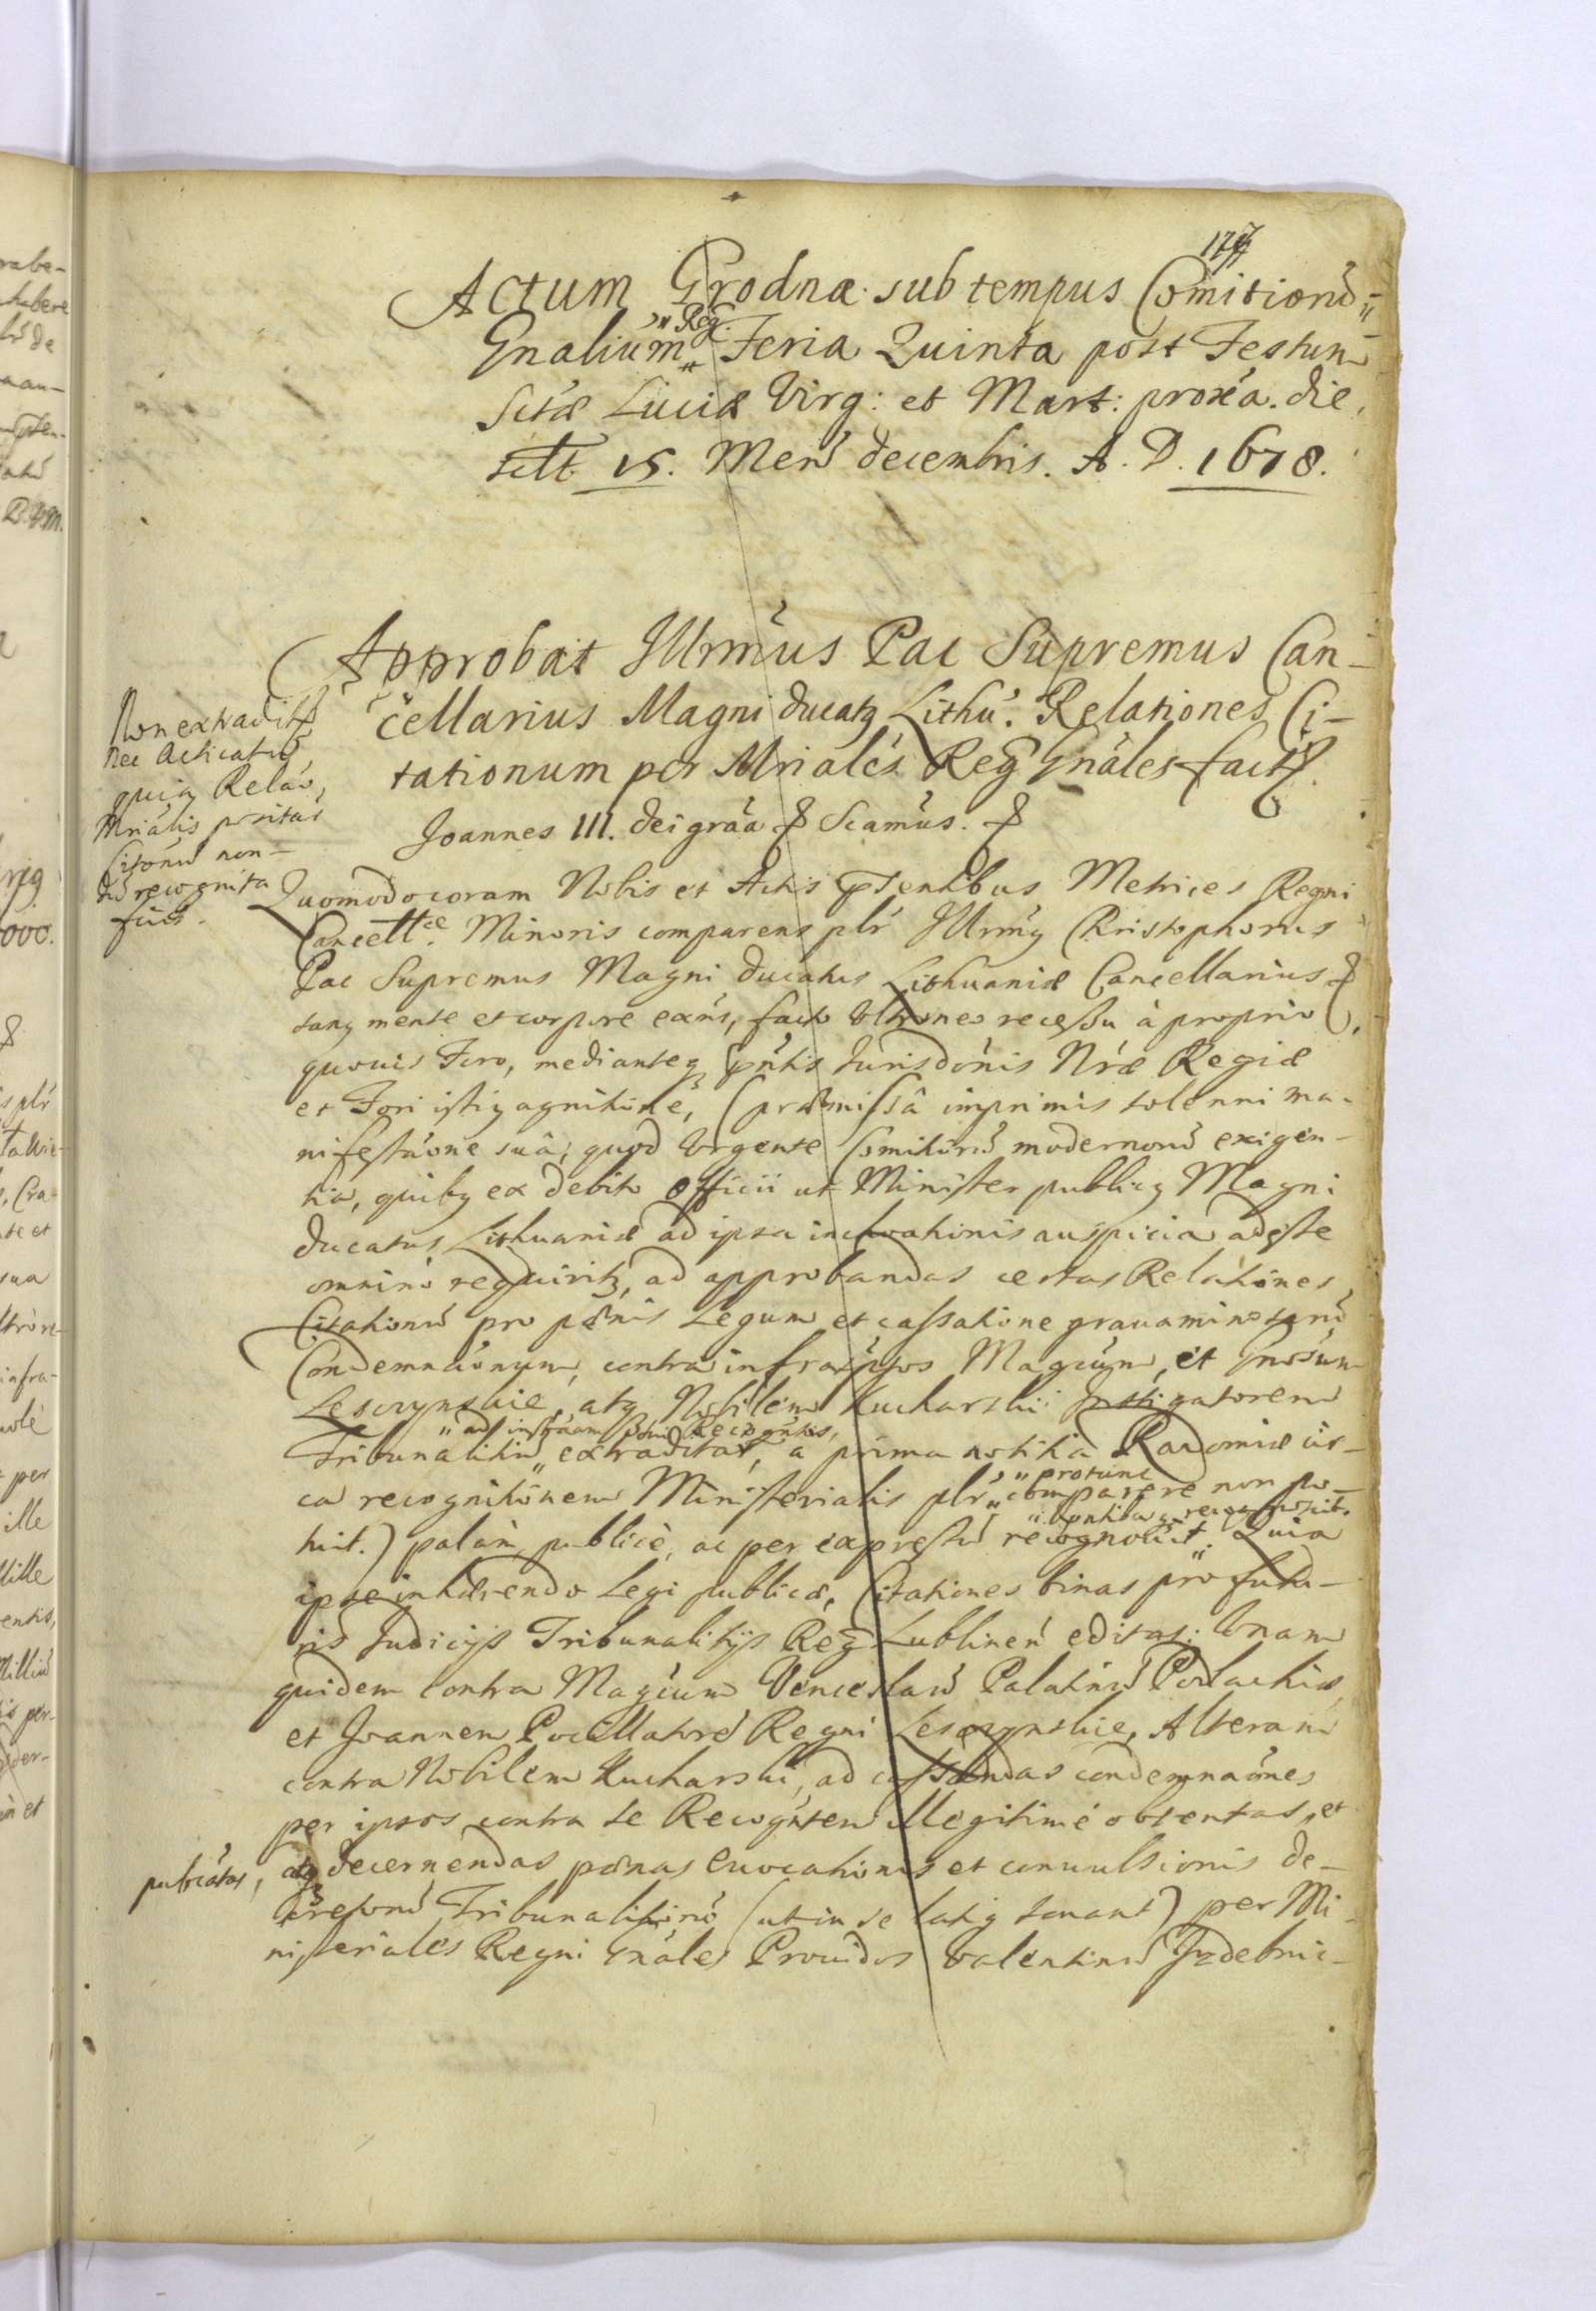 Actum Grodnæ sub tempus Comitiorũ
Gnalium „Reg. Feria Quinta post Festum
Sctæ Luciæ Virg: et Mart: proxa. die
scilt 15. Mens decembris. A. D. 1678.
Approbat Illrmus Pac Supremus Can-
cellarius Magni Ducatq Lithu. Relationes Ci-
tationum per Mriales Reg Gnales fact.
Non extradit
nec acticatũ
quia Relao,
Mrialis positar
Citonũ non-
dũ recognita
fuit.
Joannes III. dei graa Scamus.
Quomodo coram Nobis et Actis psentibus Metrices Regni
Cancellæ Minoris comparens plr Illrmq Christophorus
Pac Supremus Magni Ducatus Lithuaniæ Cancellarius
sanq mente et corpore exns, facto Vltroneo recessu à proprio
quouis Foro, medianteq pntis Iurisdonis Nræ Regiæ
et Fori istiq agnitione, (præmissâ imprimis solenni ma-
nifestaone suâ, quod Vrgente Comitiorũ modernorũ exigen-
tia, quibq ex debito officii ut Minister publicq Magni
Ducatus Lithuaniæ ad ipsa inchoationis auspicia adesse
omnino requiritq, ad approbandas certas Relationes
Citationũ pro pænis Legum et cassatione grauaminosarũ
Condemnaonum, contra infrascriptos Magcum, et Gnosum
Lesczynskie, atq Nobilem Kucharski Instigatorem
Tribunalitiũ „ad instãam sui Recogntis, extraditas, a prima notitia Radomiæ cir-
ca recognitionem Ministerialis plr „protunc comparere non po-
tuit.) palam publicè, ac per expressũ recognouit. Quia
ipse inhærendo Legi publicæ, Citationes binas pro futu-
ris Iudicijs Tribunalitijs Reg Lublinen editas: Vnam
quidem contra Magcum Venceslaũ Palatinũ Podlachiæ
et Joannem Pocillatorẽ Regni Lesczynskie, Alteram
contra Nobilem Kucharski, ad cassandas condemnaones
per ipsos contra se Recognten illegitimè obtentas, et
publicatas, atq decernendas pænas euocationis et conuulsionis de-
cretorũ Tribunalitiorũ (ut in se latiq sonant) per Mi-
nisteriales Regni Gnales Prouidos Valentinũ Izdebnic-